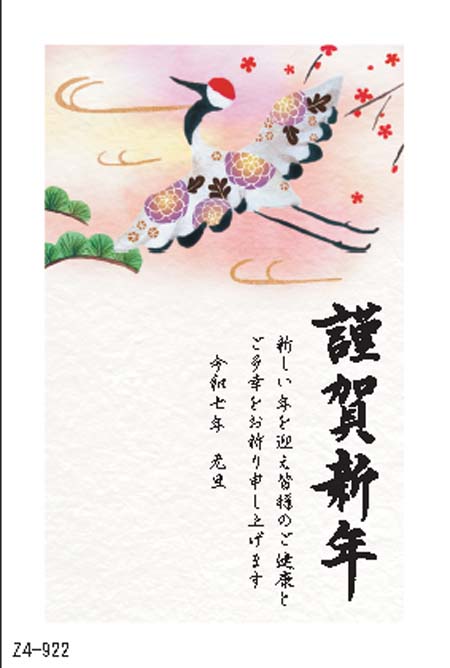 謹賀新年
新しい年を迎え皆様のご健康と
ご多幸をお祈り申し上げます
令和七年 元旦
Z4-922